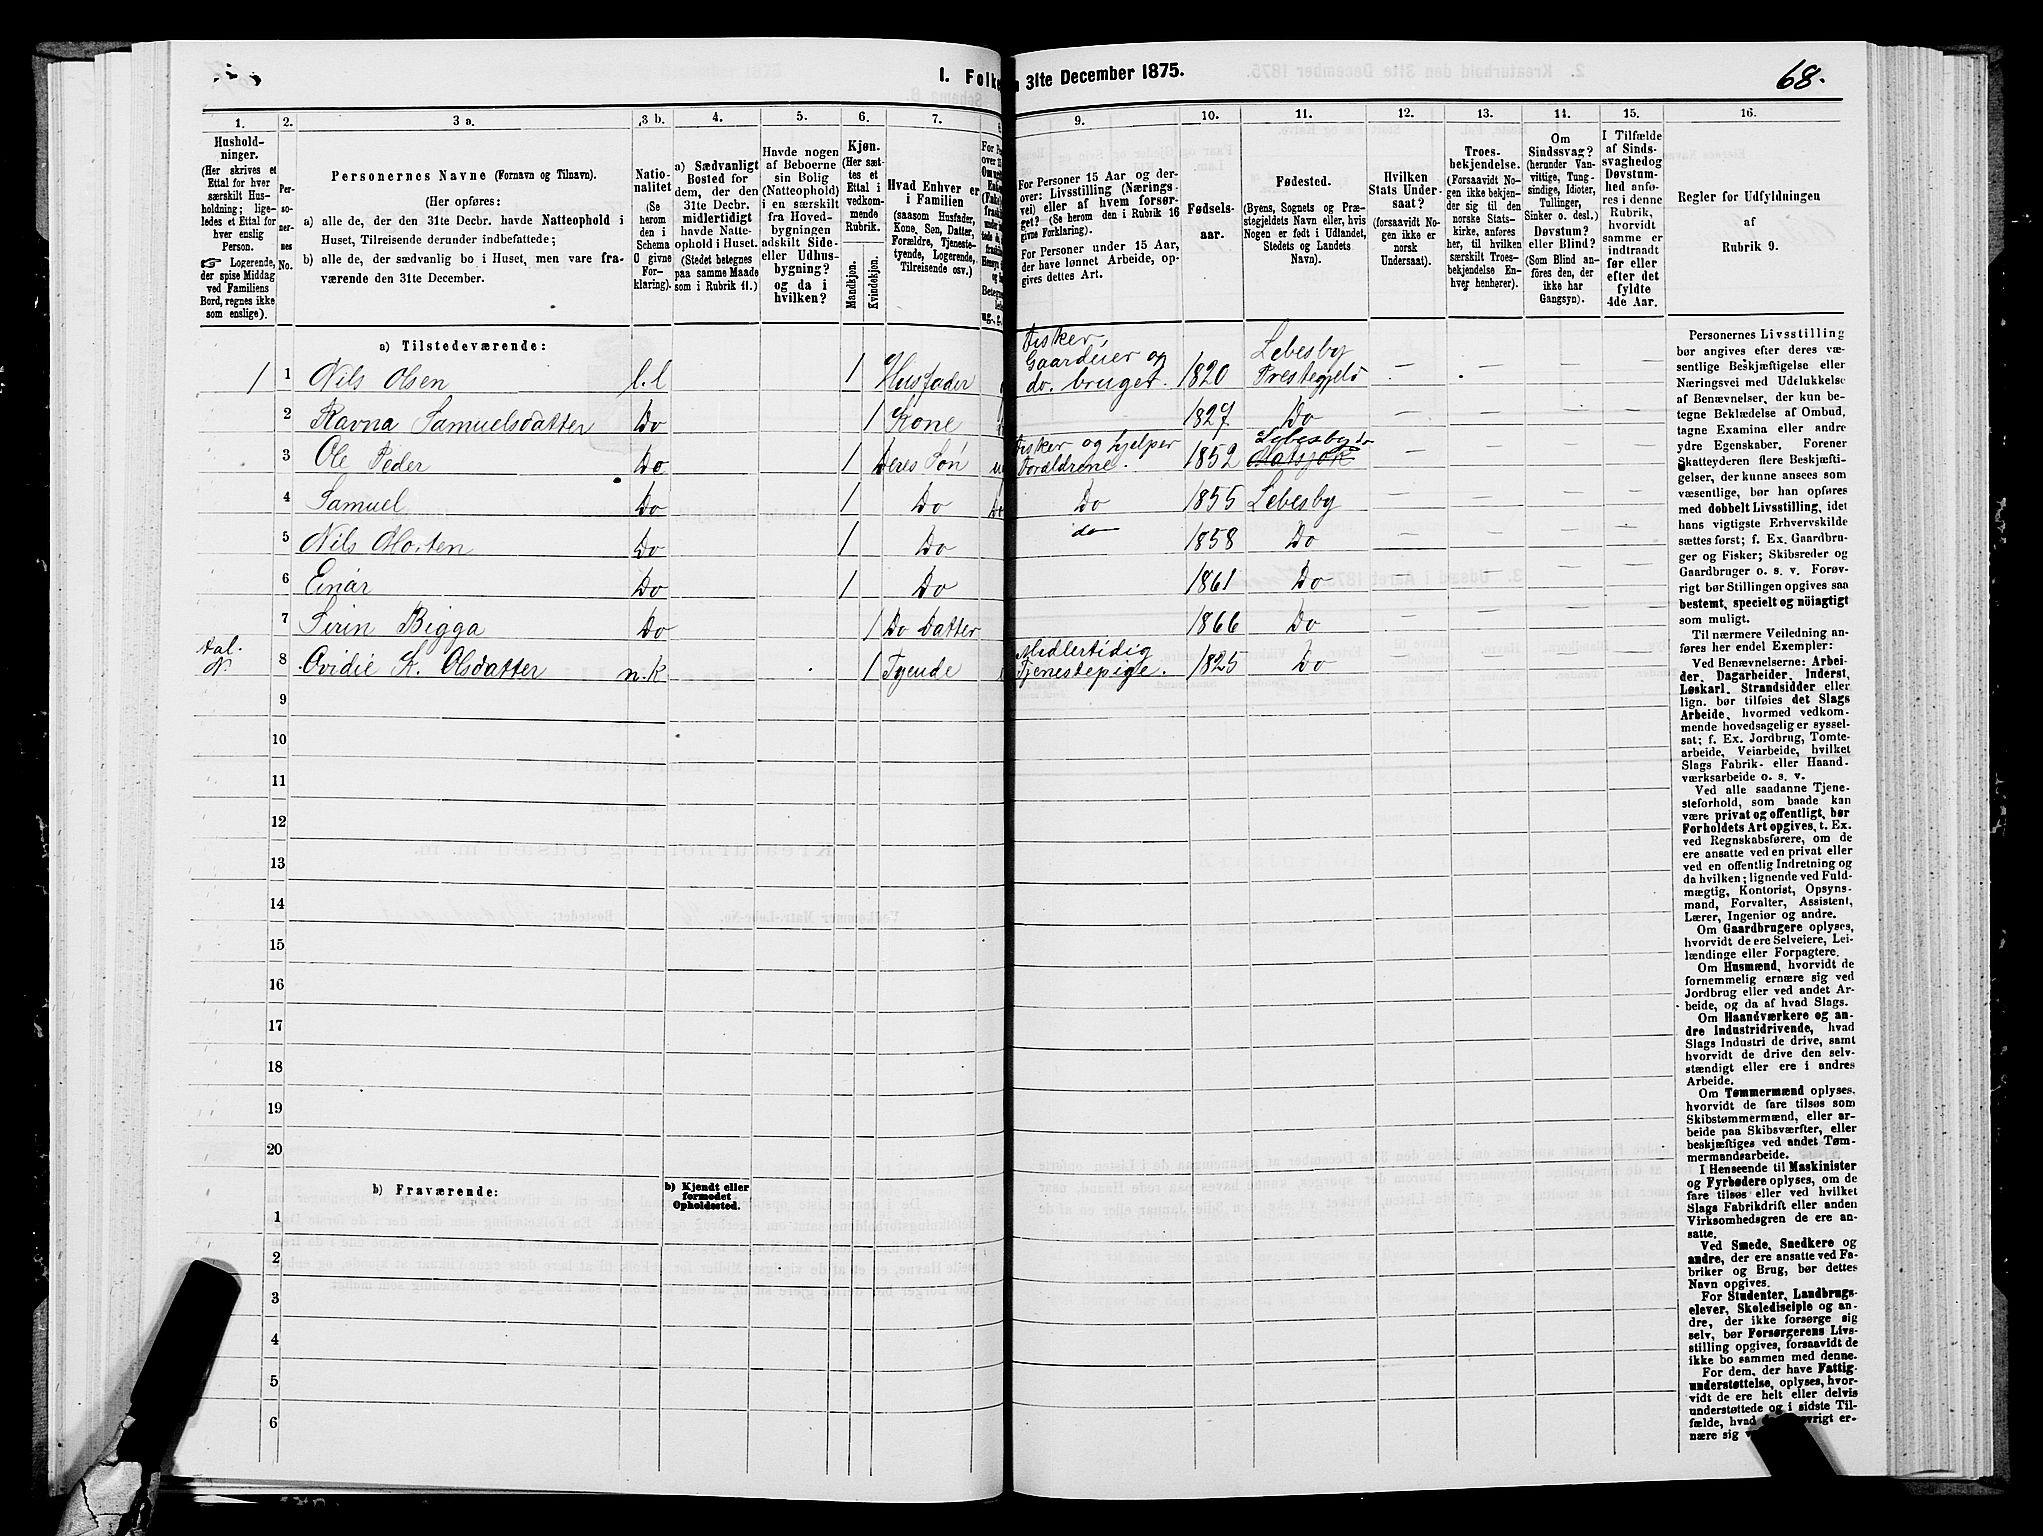 1. Folke
n 31te December 1875.
68.
1. 2. 3 a. 3 b. 4. 5. 6. 7. 8. 9. 10. 11. 12. 13. 14. 15. 16.
Hushold-
ninger.
(Her skrives et
Ettal for hver
særskilt Hus-
holdning; lige-
ledes et Ettal for
hver enslig
Person.
☞ Logerende,
der spise Middag
ved Familiens
Bord, regnes ikke
som enslige).
Per-
so-
ner-
nes
No.
Personernes Navne (Fornavn og Tilnavn).
(Her opføres:
a) alle de, der den 31te Decbr. havde Natteophold i
Huset, Tilreisende derunder indbefattede;
b) alle de, der sædvanlig bo i Huset, men vare fra-
værende den 31te December.
Natio-
nalitet
(Se
herom
den i
Schema
O givne
For-
klaring).
a) Sædvanligt
Bosted for
dem, der den
31te Decbr.
midlertidigt
havde Natte-
ophold i Huset.
(Stedet betegnes
paa samme Maade
som i Rubrik 11.)
Havde nogen
af Beboerne
sin Bolig
(Natteophold)
i en særskilt
fra Hoved-
bygningen
adskilt Side-
eller Udhus-
bygning?
og da i
hvilken?
Kjøn.
(Her sæt-
tes et
Ettal i
vedkom-
mende
Rubrik.
Mandkjøn.
Kvindekjøn.
Hvad Enhver er
i Familien
(saasom Husfader,
Kone, Søn, Datter,
Forældre, Tjeneste-
tyende, Logerende,
Tilreisende osv.)
For Personer 15 Aar og der-
over: Livsstilling (Nærings-
vei) eller af hvem forsør-
get? (Se herom i Rubrik 16
givne Forklaring).
For Personer under 15 Aar,
der have lønnet Arbeide, op-
gives dettes Art.
Fødsels-
aar.
Fødested.
(Byens, Sognets og Præ-
stegjeldets Navn eller, hvis
Nogen er født i Udlandet,
Stedets og Landets
Navn).
Hvilken
Stats Under-
saat?
(forsaavidt No-
gen ikke er
norsk
Undersaat).
Troes-
bekjendelse.
(Forsaavidt No-
gen ikke bekjen-
der sig til den
norske Stats-
kirke, anføres
her, til hvilken
særskilt Troes-
bekjendelse En-
hver henhører).
Om
Sindssvag?
(herunder Van-
vittige, Tung-
sindige, Idioter,
Tullinger,
Sinker o. desl.)
Døvstum?
eller Blind?
(Som Blind an-
føres den, der
ikke har
Gangsyn).
I Tilfælde
af Sinds-
svaghed og
Døvstum-
hed anfø-
res i denne
Rubrik,
hvorvidt
samme er
indtraadt
før eller
efter det
fyldte
4de Aar.
Regler for Udfyldningen
af
Rubrik 9.
a) Tilstedeværende:
1 1 Nils Olsen l.l 1 Husfader Fisker, Gaardeier og do. bruger. 1820 Lebesby Prestegjeld
2 Ravna Samuelsdatter Do 1 Kone 1827 Do
3 Ole Peder Do 1 Deres Søn Fisker og hjelper Forældrene. 1852 Lebesby
4 Samuel Do 1 Do Do 1855 Lebesby
5 Nils Morten Do 1 Do do 1858 Do
6 Einar Do 1 Do 1861 Do
7 Sirin Bigga Do 1 Do Datter 1866 Do
8 Ovidie K. Olsdatter n.k 1 Tyende Midlertidig Tjenestepige. 1825 Do
9
10
11
12
13
14
15
16
17
18
19
20
b) Fraværende:
b) Kjendt eller
formodet
Opholdssted.
1
2
3
4
5
6
Personernes Livsstilling
bør angives efter deres væ-
sentlige Beskjæftigelse eller
Næringsvei med Udelukkelse
af Benævnelser, der kun be-
tegne Beklædelse af Ombud,
tagne Examina eller andre
ydre Egenskaber. Forener
Skatteyderen flere Beskjæfti-
gelser, der kunne ansees som
væsentlige, bør han opføres
med dobbelt Livsstilling, idet
hans vigtigste Erhvervskilde
sættes først; f. Ex. Gaardbru-
ger og Fisker; Skibsreder og
Gaardbruger o. s. v. Forøv-
rigt bør Stillingen opgives saa
bestemt, specielt og nøiagtigt
som muligt.
Til nærmere Veiledning an-
føres her endel Exempler:
Ved Benævnelserne: Arbei-
der, Dagarbeider, Inderst,
Løskarl, Strandsidder eller
lign. bør tilføies det Slags
Arbeide, hvormed vedkom-
mende hovedsagelig er syssel-
sat; f. Ex. Jordbrug, Tomte-
arbeide, Veiarbeide, hvilket
Slags Fabrik- eller Haand-
værksarbeide o. s. v.
Ved alle saadanne Tjene-
steforhold, som baade kan
være privat og offentligt, bør
Forholdets Art opgives, t. Ex.
ved Regnskabsførere, om de
ere ansatte ved en privat eller
ved en offentlig Indretning og
da hvilken; lignende ved Fuld-
mægtig, Kontorist, Opsyns-
mand, Forvalter, Assistent,
Lærer, Ingeniør og andre.
Om Gaardbrugere oplyses,
hvorvidt de ere Selveiere, Lei-
lændinge eller Forpagtere.
Om Husmænd, hvorvidt de
fornemmelig ernære sig ved
Jordbrug eller ved andet Ar-
beide, og da af hvad Slags.
Om Haandværkere og an-
dre Industridrivende, hvad
Slags Industri de drive, samt
hvorvidt de drive den selv-
stændigt eller ere i andres
Arbeide.
Om Tømmermænd oplyses,
hvorvidt de fare tilsøs som
Skibstømmermænd, eller ar-
beide paa Skibsværfter, eller
beskjæftiges ved andet Tøm-
mermandsarbeide.
I Henseende til Maskinister
og Fyrbødere oplyses, om de
fare tilsøs eller ved hvilket
Slags Fabrikdrift eller anden
Virksomhedsgren de ere an-
satte.
Ved Smede, Snedkere og
andre, der ere ansatte ved Fa-
briker og Brug, bør dettes
Navn opgives.
For Studenter, Landbrugs-
elever, Skoledisciple og an-
dre, der ikke forsørge sig
selv, bør Forsørgerens Livs-
stilling opgives, forsaavidt de
ikke bo sammen med denne.
For dem, der have Fattig-
understøttelse, oplyses, hvor-
vidt de ere helt eller delvis
understøttede og i sidste Til-
fælde, hvad